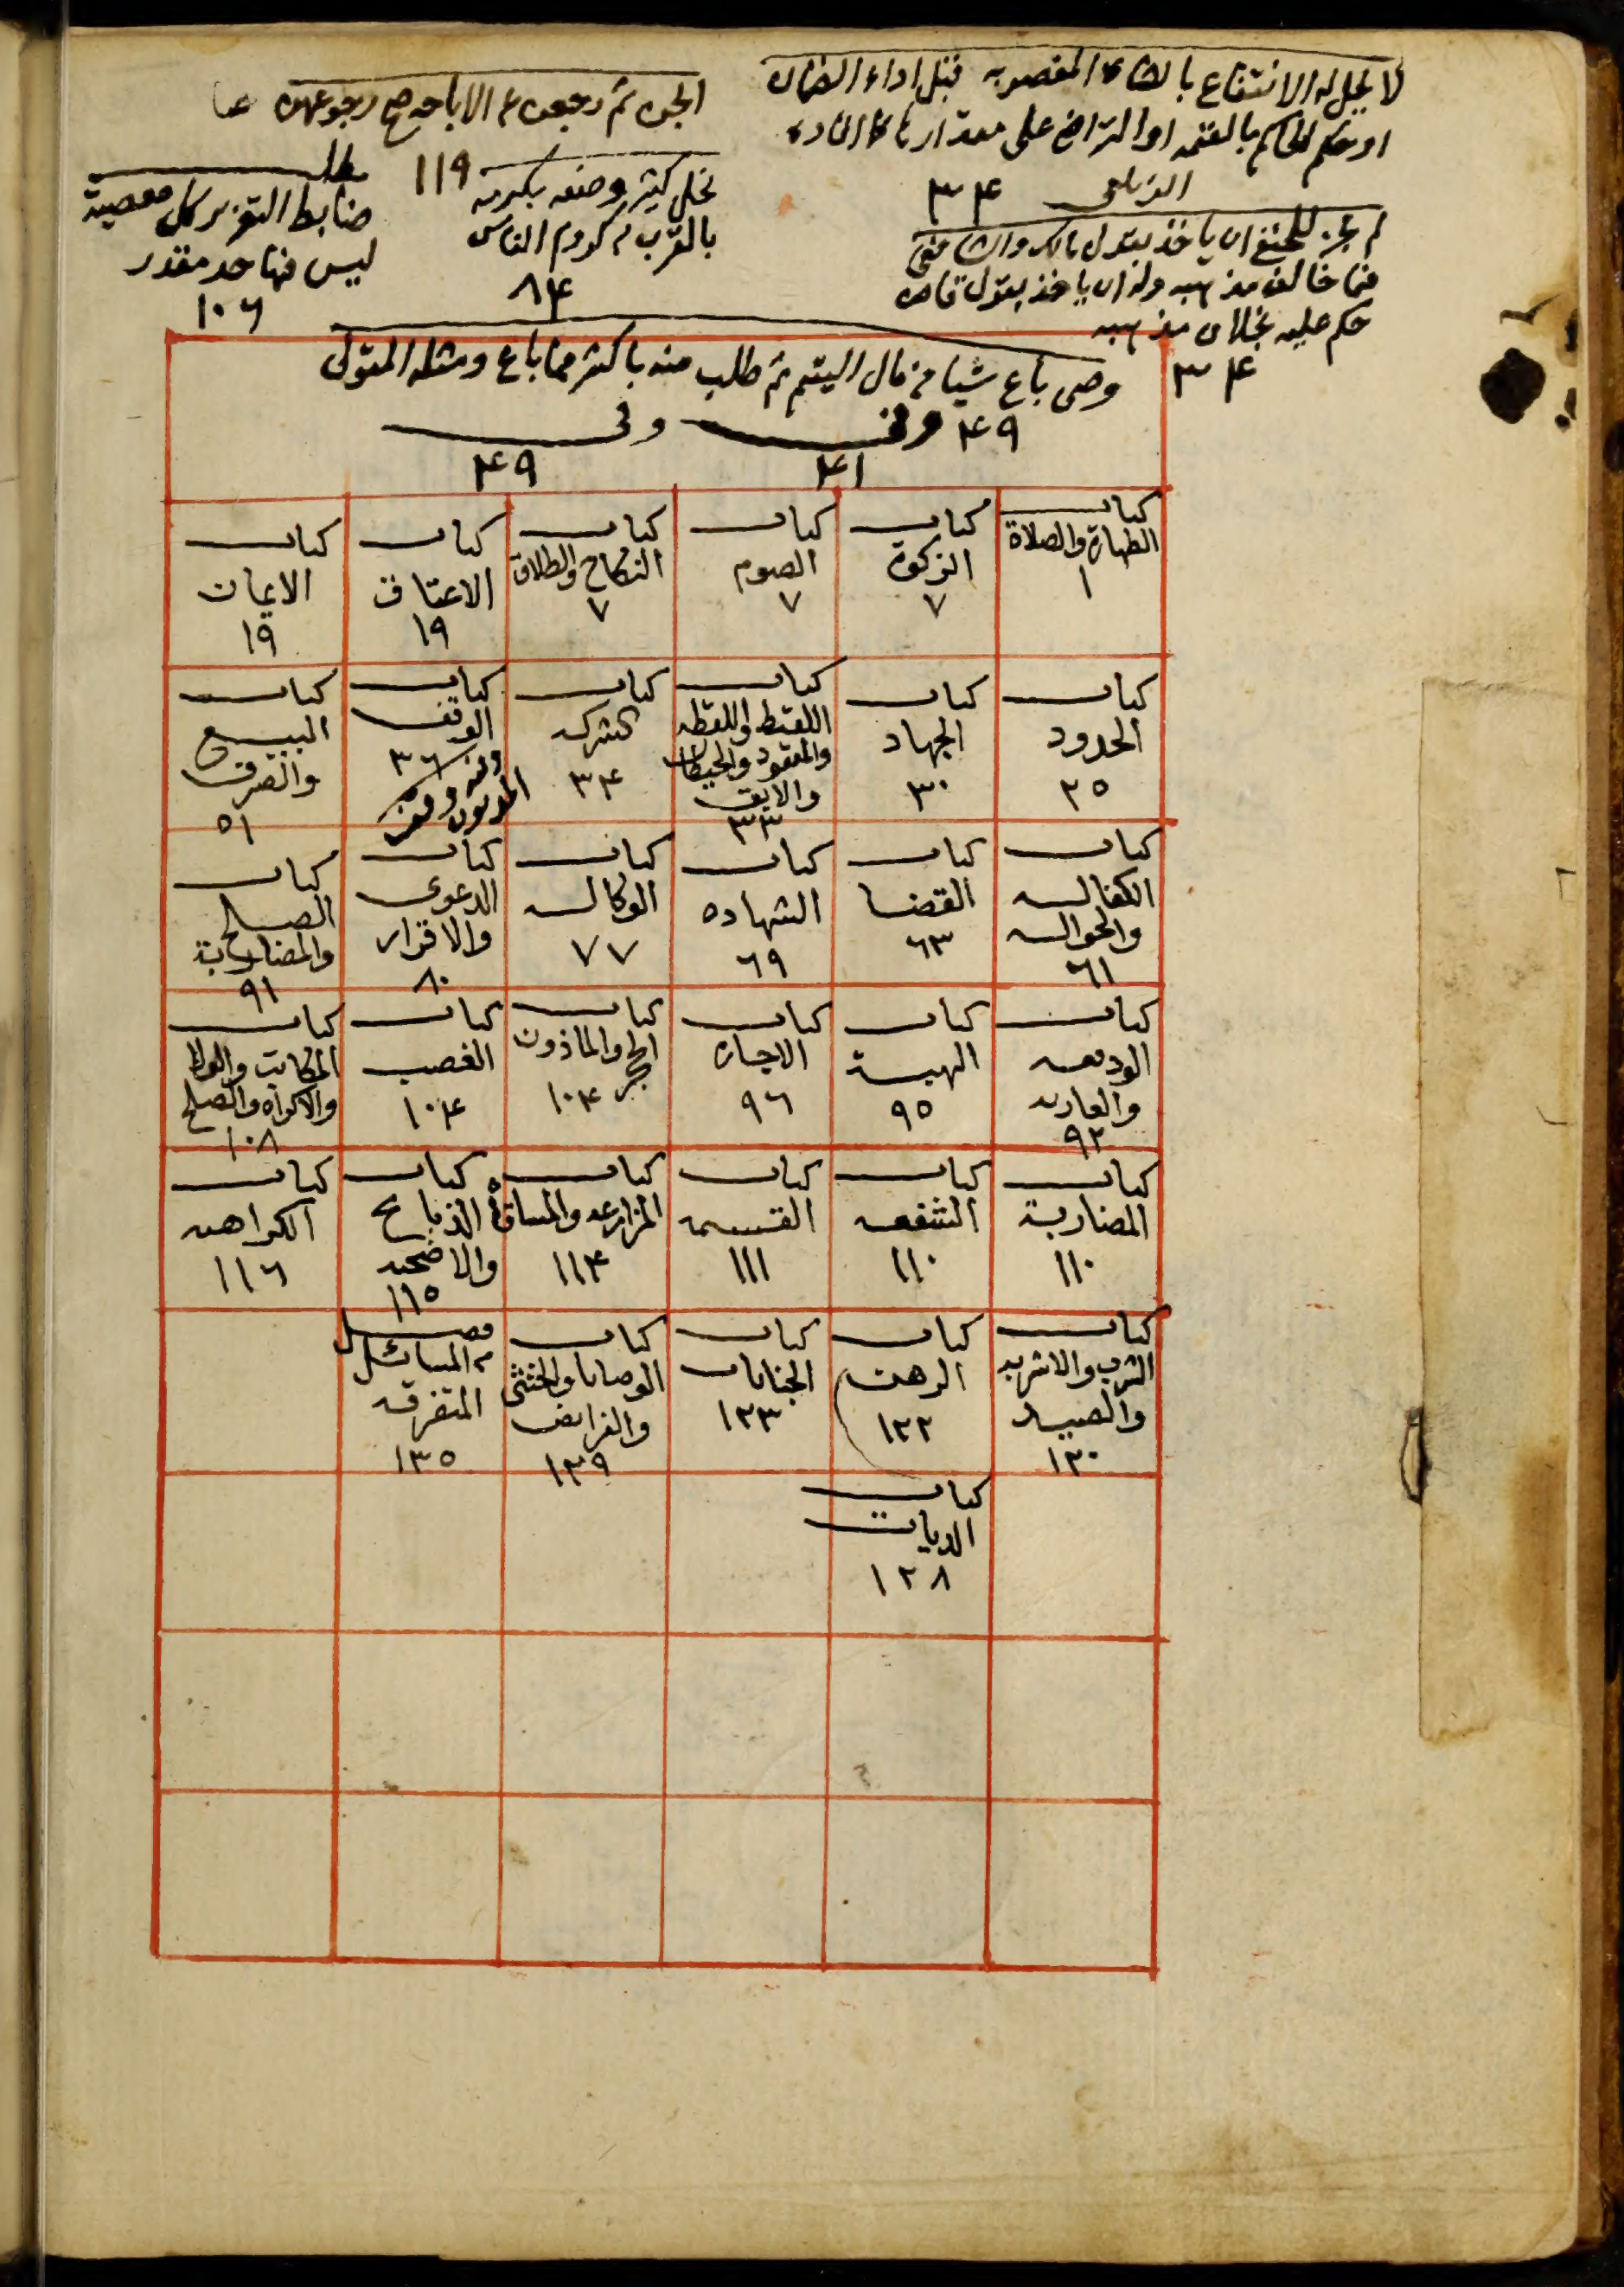 لا يحل له الانتفاع بالشاة المغصوبه قبل اداء الضمان
او حكم الحاكم بالقيمه او التراضي على مقدار
الزيلعي ٣٤
لم يجز للحنفي ان ياخذ بقول مالك والشافعي
فيما خالف مذهبه وله ان ياخذ بقول قاض
حكم عليه بخلاف مذهبه
٣٤
ثم رجعت الاباحه صح رجوعهن
نحل كثير وضعه بكرمه ١١٩
بالقرب كروم الناس
٨٤
مطلب
ضابط التعزير كل معصية
ليس فيها حد مقدر
١٠٦
وصي باع شيا من مال اليتيم ثم طلب منه باكثر مما باع ومثله المتولي
٤٩ وفي وفي
٤١ ٤٩
كتاب الطهارة والصلاة ١
كتاب الزكوة ٧
كتاب الصوم ٧
كتاب النكاح والطلاق ٧
كتاب الاعتاق ١٩
كتاب الايمان ١٩
كتاب الحدود ٢٥
كتاب الجهاد ٣٠
كتاب اللقيط واللقطه والمفقود والحيطان والابق ٣٣
كتاب الشركه ٣٤
كتاب الوقف ٣٦
وفيه وقف المديون
كتاب البيع والصرف ٥١
كتاب الكفاله والحواله ٦١
كتاب القضا ٦٣
كتاب الشهاده ٦٩
كتاب الوكاله ٧٧
كتاب الدعوى والاقرار ٨٠
كتاب الصلح والمضاربة ٩١
كتاب الوديعه والعاريه ٩٢
كتاب الهبة ٩٥
كتاب الاجاره ٩٦
كتاب الحجر والماذون ١٠٤
كتاب الغصب ١٠٤
كتاب المكاتب والولا والاكراه والصلح ١٠٨
كتاب المضاربة ١١٠
كتاب الشفعه ١١٠
كتاب القسمه ١١١
كتاب المزارعه والمساقاة ١١٤
كتاب الذبايح والاضحيه ١١٥
كتاب الكراهيه ١١٦
كتاب الشرب والاشربه والصيد ١٢٠
كتاب الرهن ١٢٢
كتاب الجنايات ١٢٣
كتاب الوصايا والخنثى والفرايض ١٢٩
فصل في المسائل المتفرقه ١٣٥
كتاب الديات ١٢٨